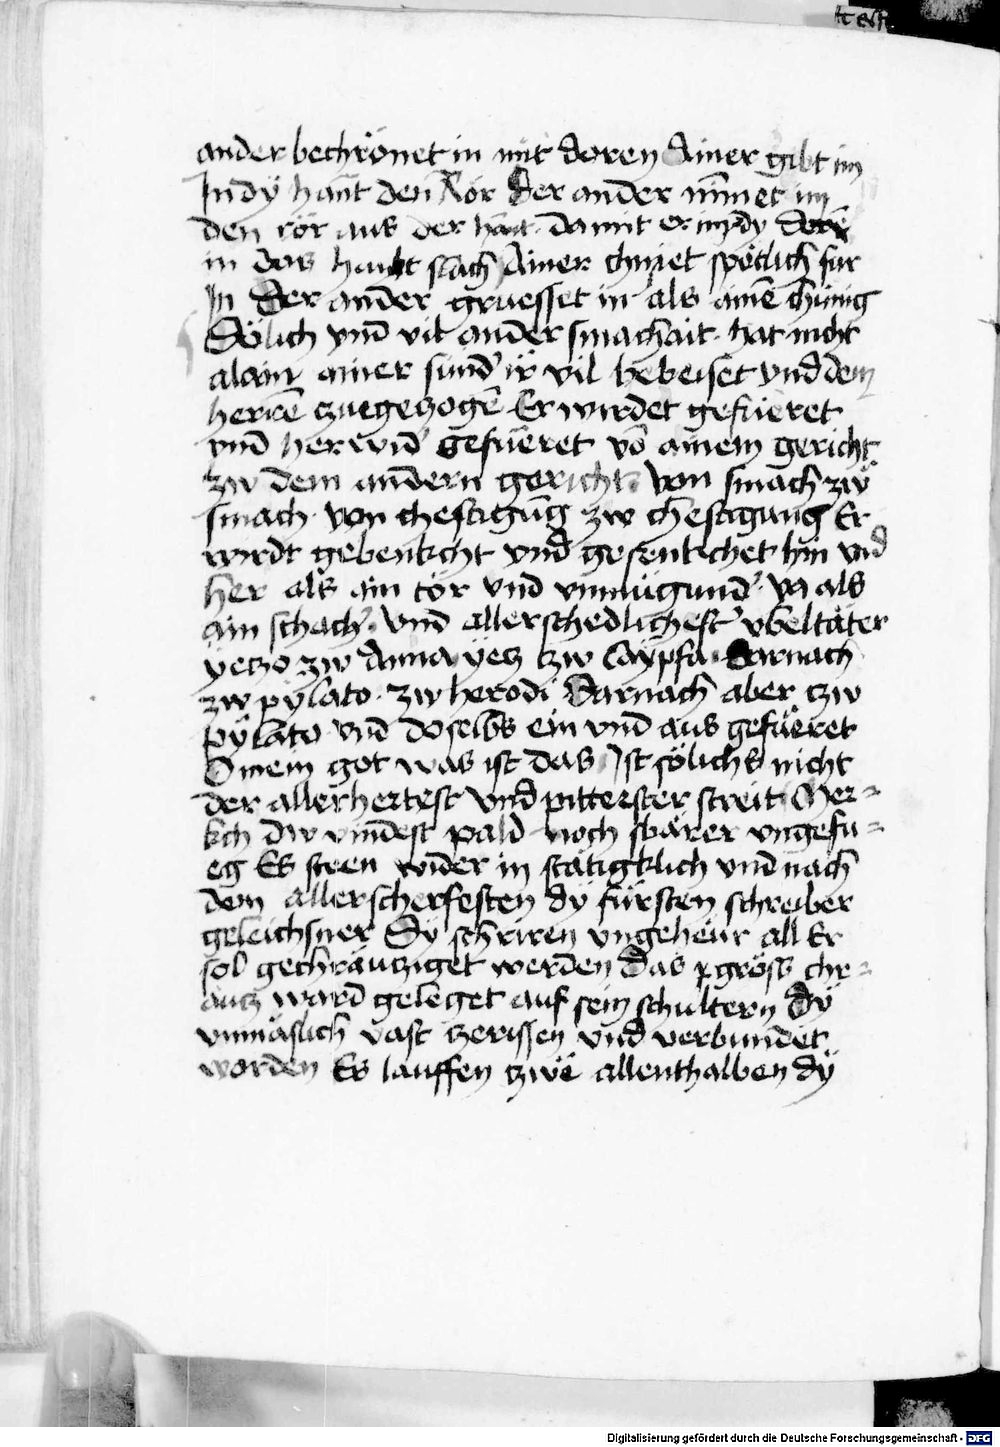 ander bechrönet in mit doren Ainer gibt im
In dÿ hant den Rör Der ander nimet im
den rör aus der hant · damit er im dy dorn̄
in das haubt slach Ainer chniet spötlich für
In Der ander gruesset in als ainē chünig
Sölich vnd vil ander smachait · hat nicht
alain ainer sund' ir vil bebeiset vnd dem
herren̄ czuegezogē Er wirdet gefüeret
vnd herwid' gefüeret vō ainem gericht
zw dem andern gericht · von smach zw
smach · von chestigung zw chestigung Er
wirdt gebenkcht vnd gesenkchet hin vnd
her als ain tör vnd vnmügund' · Ia als
ain schach' · vnd allerschedlichest' vbeltäter
ÿetzo zw Anna ÿetz tzw Caÿpfa · Darnach
zw pÿlato · zw herodi Darnach aber tzw
pÿlato · vnd doselbs ein vnd aus gefüeret
O mein got was ist das Ist sölichs nicht
der allerhertest vnd pitterster streit Mer=
kch dw vindest pald noch sbärer vngefu=
eg Es steen wider in stätigklich vnd nach
dem allerscherfesten dÿ fürsten schreiber
geleichsner Dÿ schriren vngeheür all Er
sol gechräutziget werden das gröss chr=
äutz ward geleget auf sein schultern dÿ
vnmäslich vast zerissen vnd verbundet
worden Es lauffen tzwe allenthalben dÿ
Digitalisierung gefördert durch die Deutsche Forschungsgemeinschaft - DFG